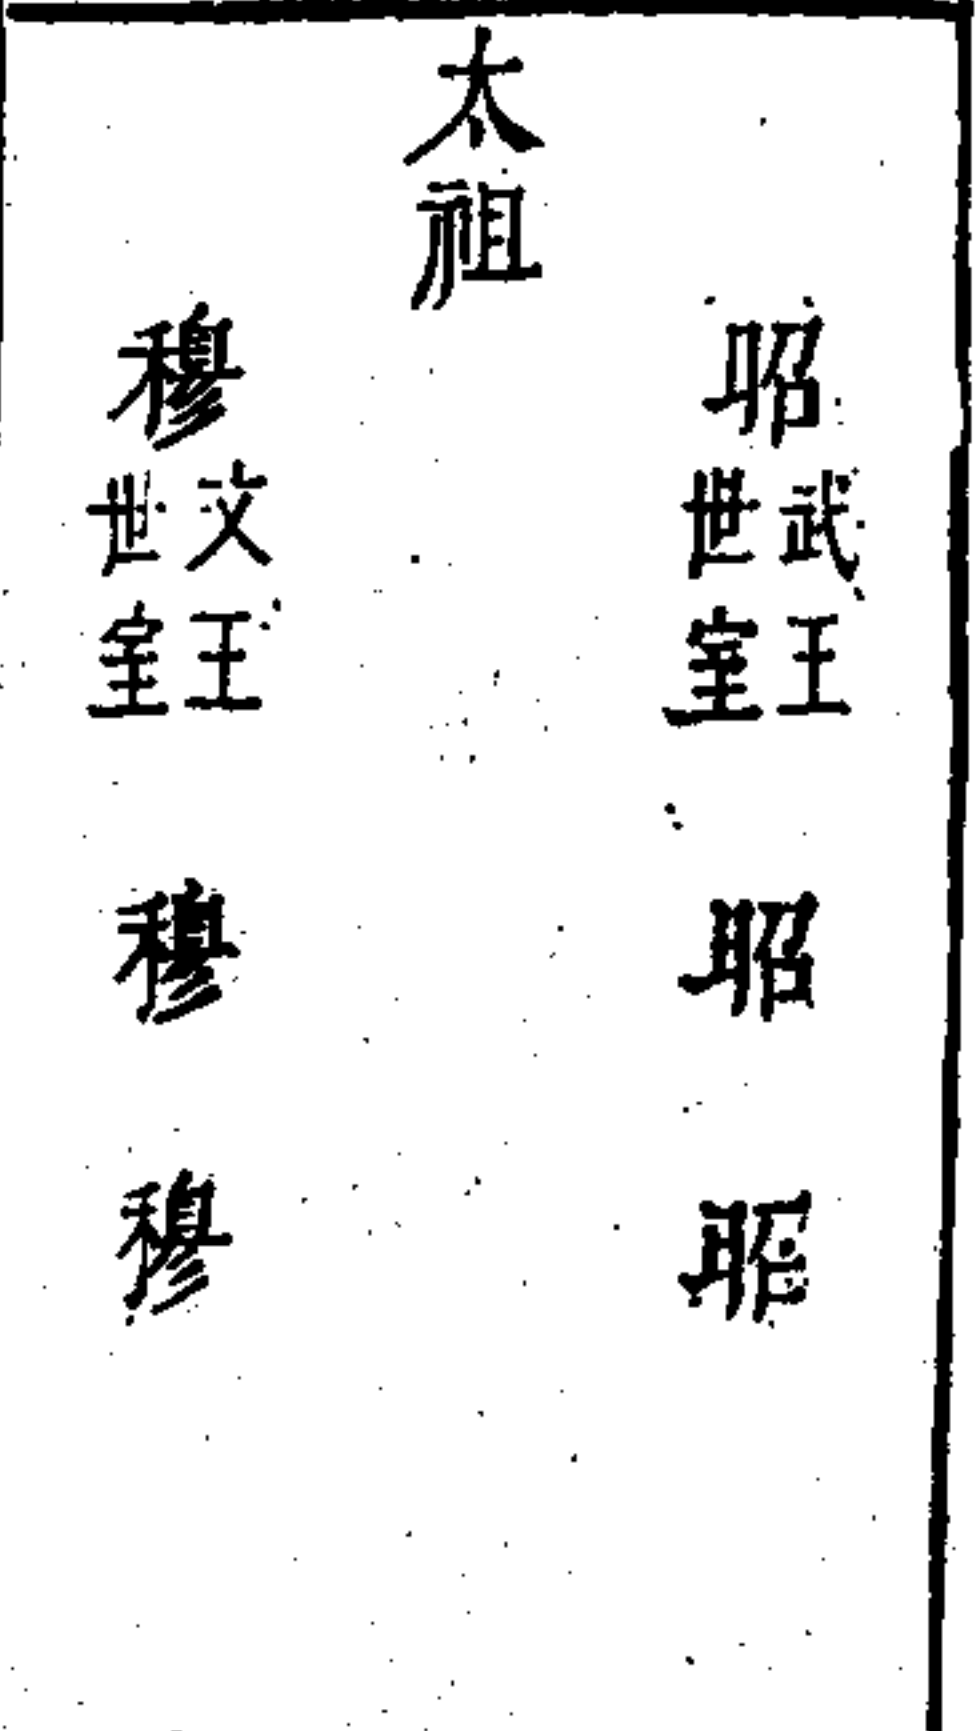 太祖
昭
武王
世室
昭
昭
穆
文王
世室
穆
穆